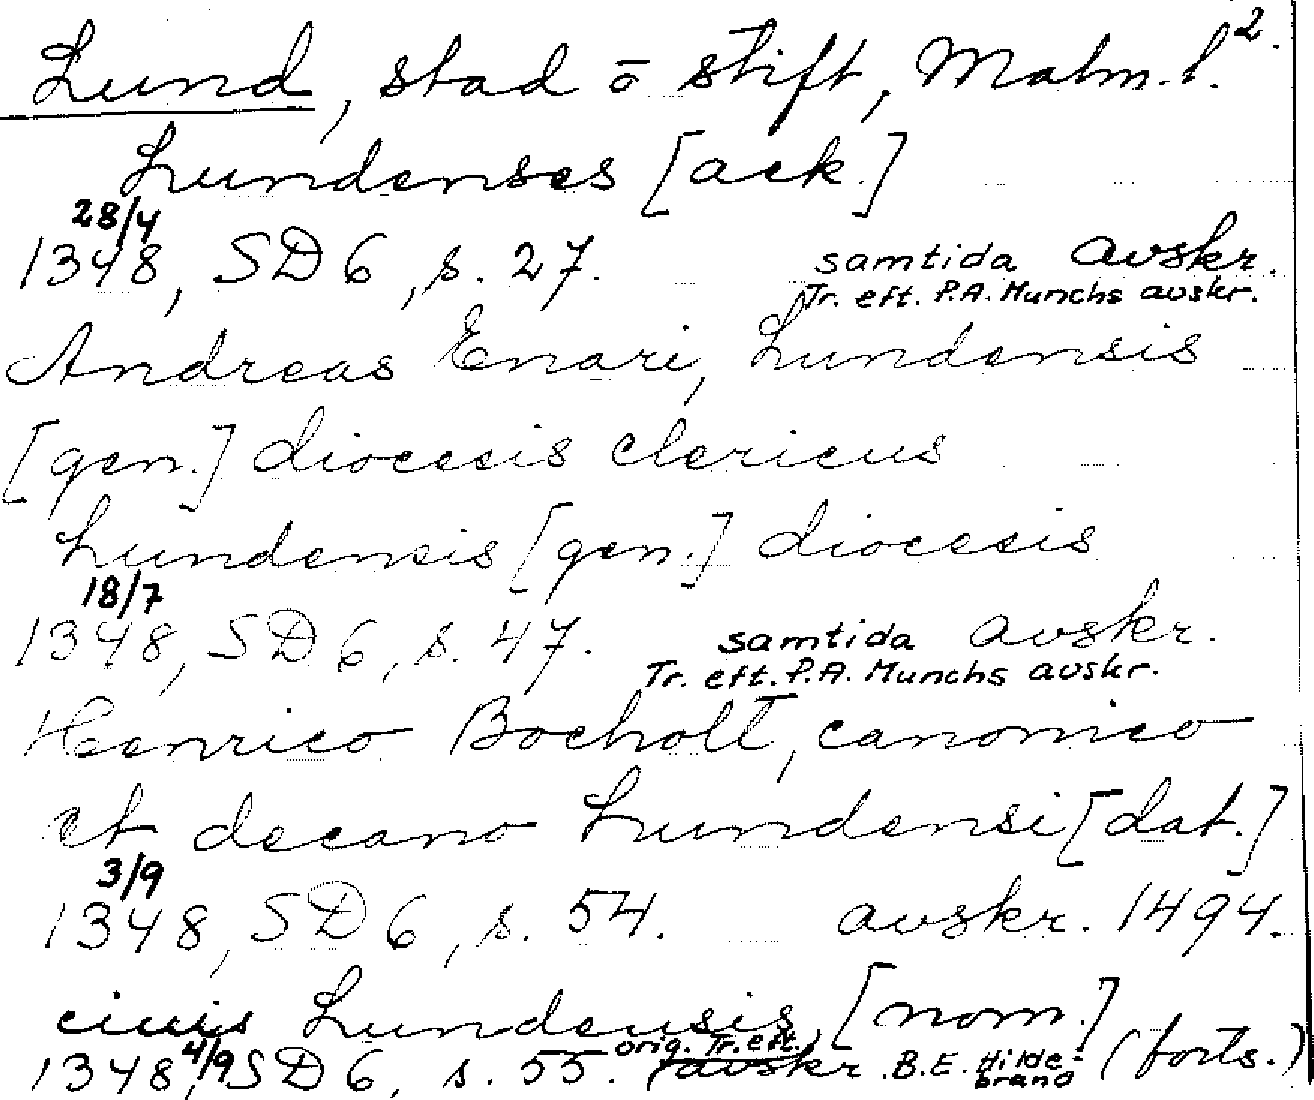 Lund, stad o stift, Malm. l. 2.
Lundenses [ack.]
28/4
1348, SD 6, s. 27. samtida avskr.
Tr. eft. P.A. Munchs avskr.
Andreas Enari, Lundensis
[gen.] diocesis clericus
Lundensis [gen.] diocesis
18/7
1348, SD 6, s. 47. samtida avskr.
Tr. eft. P.A. Munchs avskr.
Henrico Bocholt, canonico
et decano Lundensi [dat.]
3/9
1348, SD 6, s. 54. avskr. 1494.
ciuis Lundensis, [nom.]
1348 4/9 SD 6, s. 55. orig. Tr. eft. avskr. B.E. Hildebrand (forts.)